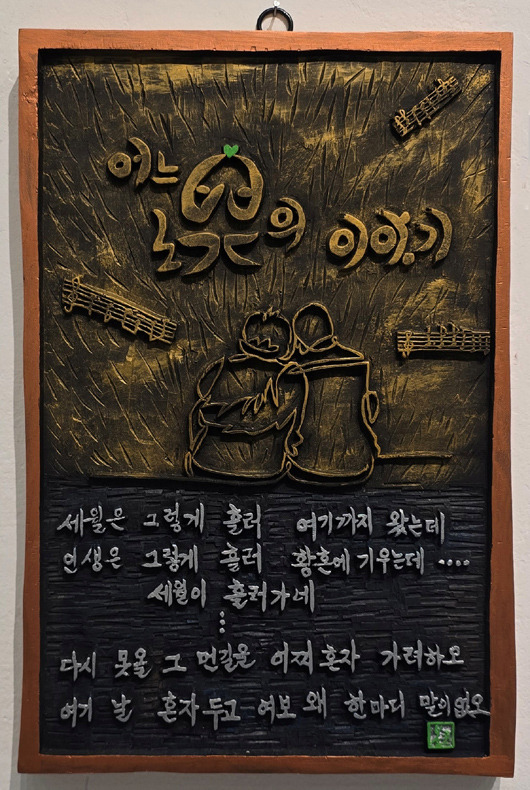 어느
노부부의 이야기
세월은 그렇게 흘러 여기까지 왔는데
인생은 그렇게 흘러 황혼에 기우는데 ....
세월이 흘러가네
⋮
다시 못올 그 먼길을 어찌 혼자 가려하오
여기 날 혼자 두고 여보 왜 한마디 말이 없오